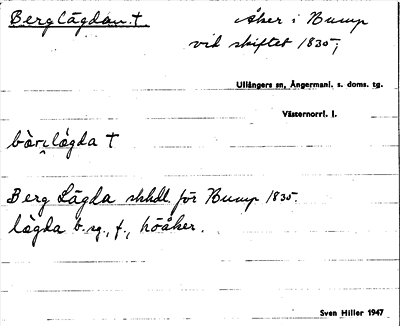 Berglägdan. †
Åker i Bump
vid skiftet 1835;
Ullångers sn, Ångermanl. s. doms. tg.
Västernorrl. l.
lägda †
Berg Lägda skhdl. för Bump 1835.
lägda b. sg., f., höåker.
Sven Hiller 1947